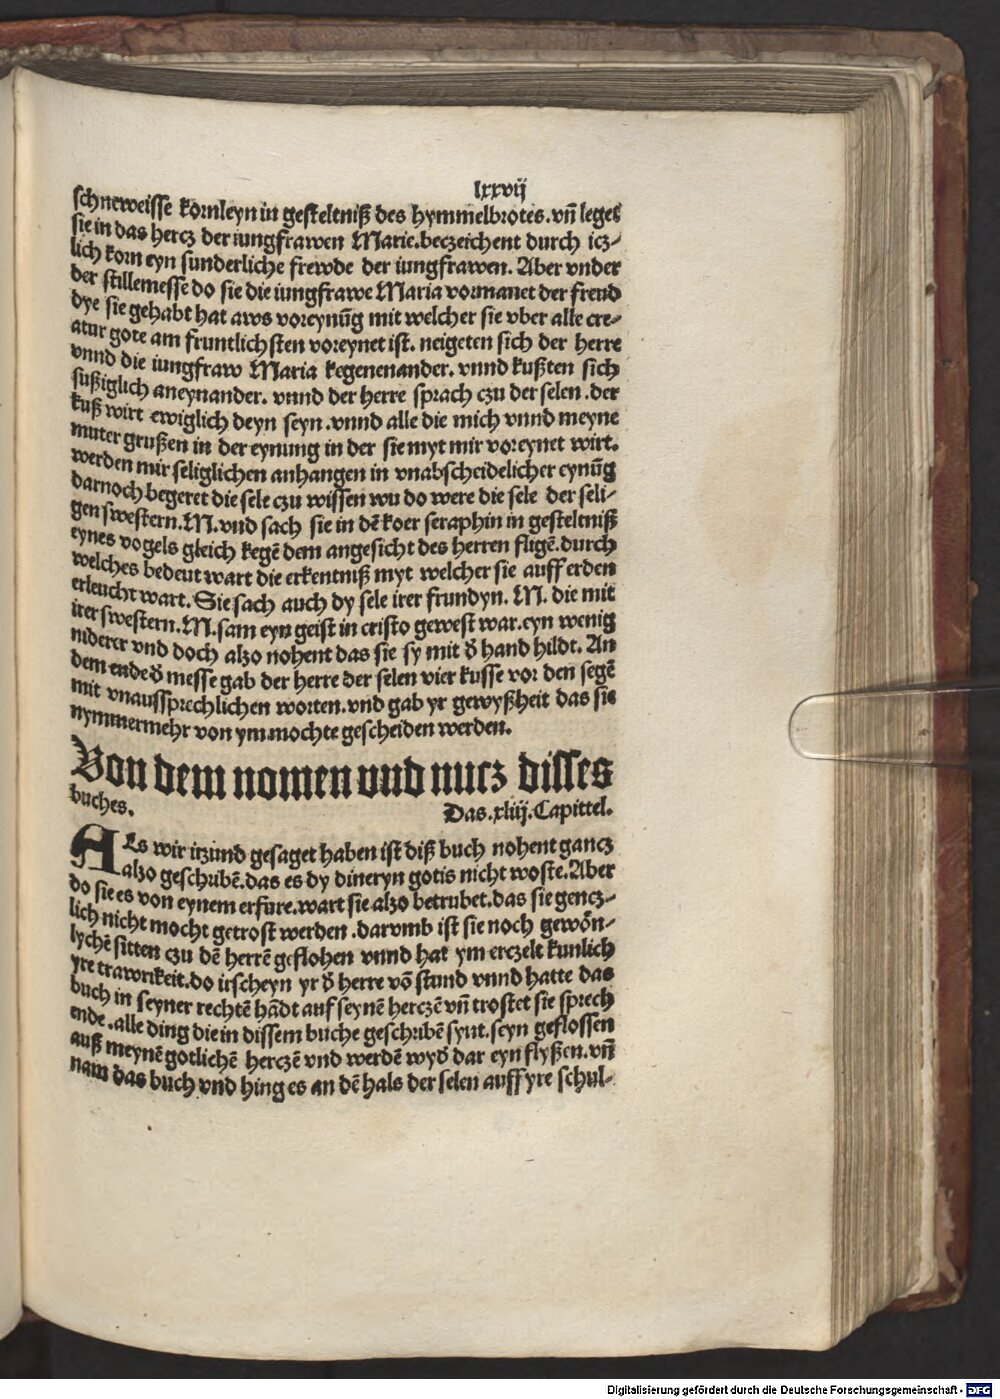 lxxvij
schneweisse kornleyn in gesteltniß des hymmelbrotes. vñ leget
sie in das hercz der iungfrawen Marie. beczeichent durch icz⸗
lich korn eyn sunderliche frewde der iungfrawen. Aber vnder
der stillemesse do sie die iungfrawe Maria vormanet der freud
dye sie gehabt hat aws voreynũg mit welcher sie vber alle cre⸗
atur gote am fruntlichsten voreynet ist. neigeten sich der herre
vnnd die iungfraw Maria kegenenander. vnnd kußten sich
sußiglich aneynander. vnnd der herre sprach czu der selen .der
kuß wirt ewiglich deyn seyn .vnnd alle die mich vnnd meyne
muter grußen in der eynung in der sie myt mir voreynet wirt.
werden mir seliglichen anhangen in vnabscheidelicher eynũg
darnoch begeret die sele czu wissen wu do were die sele der seli⸗
gen swestern. M. vnd sach sie in dẽ koer seraphin in gesteltniß
eynes vogels gleich kegẽ dem angesicht des herren fligẽ. durch
welches bedeut wart die erkentniß myt welcher sie auff erden
erleucht wart. Sie sach auch dy sele irer frundyn. M. die mit
irer swestern. M. sam eyn geist in cristo gewest war. eyn wenig
niderer vnd doch alzo nohent das sie sy mit d̕ hand hildt. An
dem ende d̕ messe gab der herre der selen vier kusse vor den segẽ
mit vnaussprechlichen worten. vnd gab yr gewyßheit das sie
nymmermehr von ym mochte gescheiden werden.
Von dem nomen vnd nucz disses
buches. Das .xliij. Capittel.
Als wir itzund gesaget haben ist diß buch nohent gancz
alzo geschribẽ. das es dy dineryn gotis nicht woste. Aber
do sie es von eynem erfure. wart sie alzo betrubet. das sie gencz⸗
lich nicht mocht getrost werden .darvmb ist sie noch gewõn⸗
lychẽ sitten czu dẽ herrẽ geflohen vnnd hat ym erczelt kunlich
yre trawrikeit. do irscheyn yr d̕ herre võ stund vnnd hatte das
buch in seyner rechtẽ hãdt auf seynẽ herczẽ vñ trostet sie sprech
ende .alle ding die in dissem buche geschribẽ synt. seyn geflossen
auß meynẽ gotlichẽ herczẽ vnd werdẽ wyd̕ dar eyn flyßen. vñ
nam das buch vnd hing es an dẽ hals der selen auff yre schul⸗
Digitalisierung gefördert durch die Deutsche Forschungsgemeinschaft - DFG